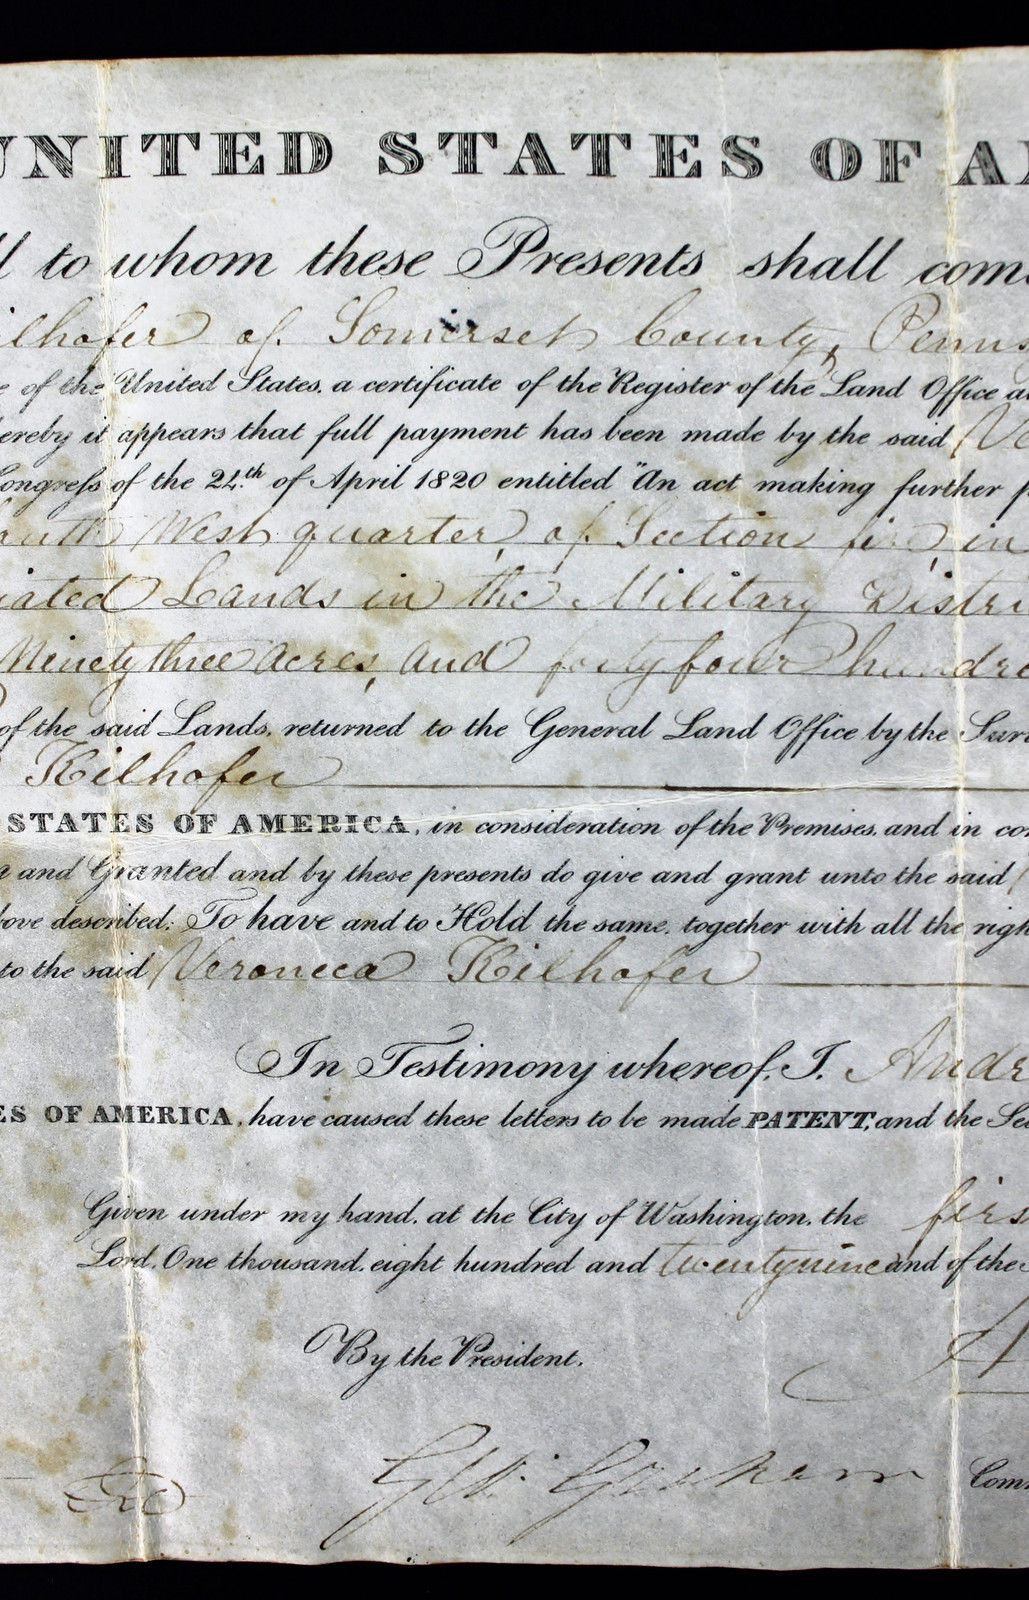 UNITED STATES OF A
ll to whom these Presents shall come
ilhofer of Somerset County, Penns
e of the United States, a certificate of the Register of the Land Office a
hereby it appears that full payment has been made by the said Ve
Congress of the 24th of April 1820 entitled "An act making further p
South West quarter, of Section five, in
iated Lands in the Military Distri
Ninety three acres, and forty four hundre
of the said Lands, returned to the General Land Office by the Sur
Kilhofer
STATES OF AMERICA, in consideration of the Premises, and in con
n and Granted and by these presents do give and grant unto the said
bove described: To have and to Hold the same, together with all the righ
to the said Veroneca Kilhofer
In Testimony whereof, I, Andre
ES OF AMERICA, have caused these letters to be made PATENT, and the Sea
Given under my hand, at the City of Washington, the firs
Lord, One thousand, eight hundred and twentynine and of the
By the President,
A
G W. Graham Com